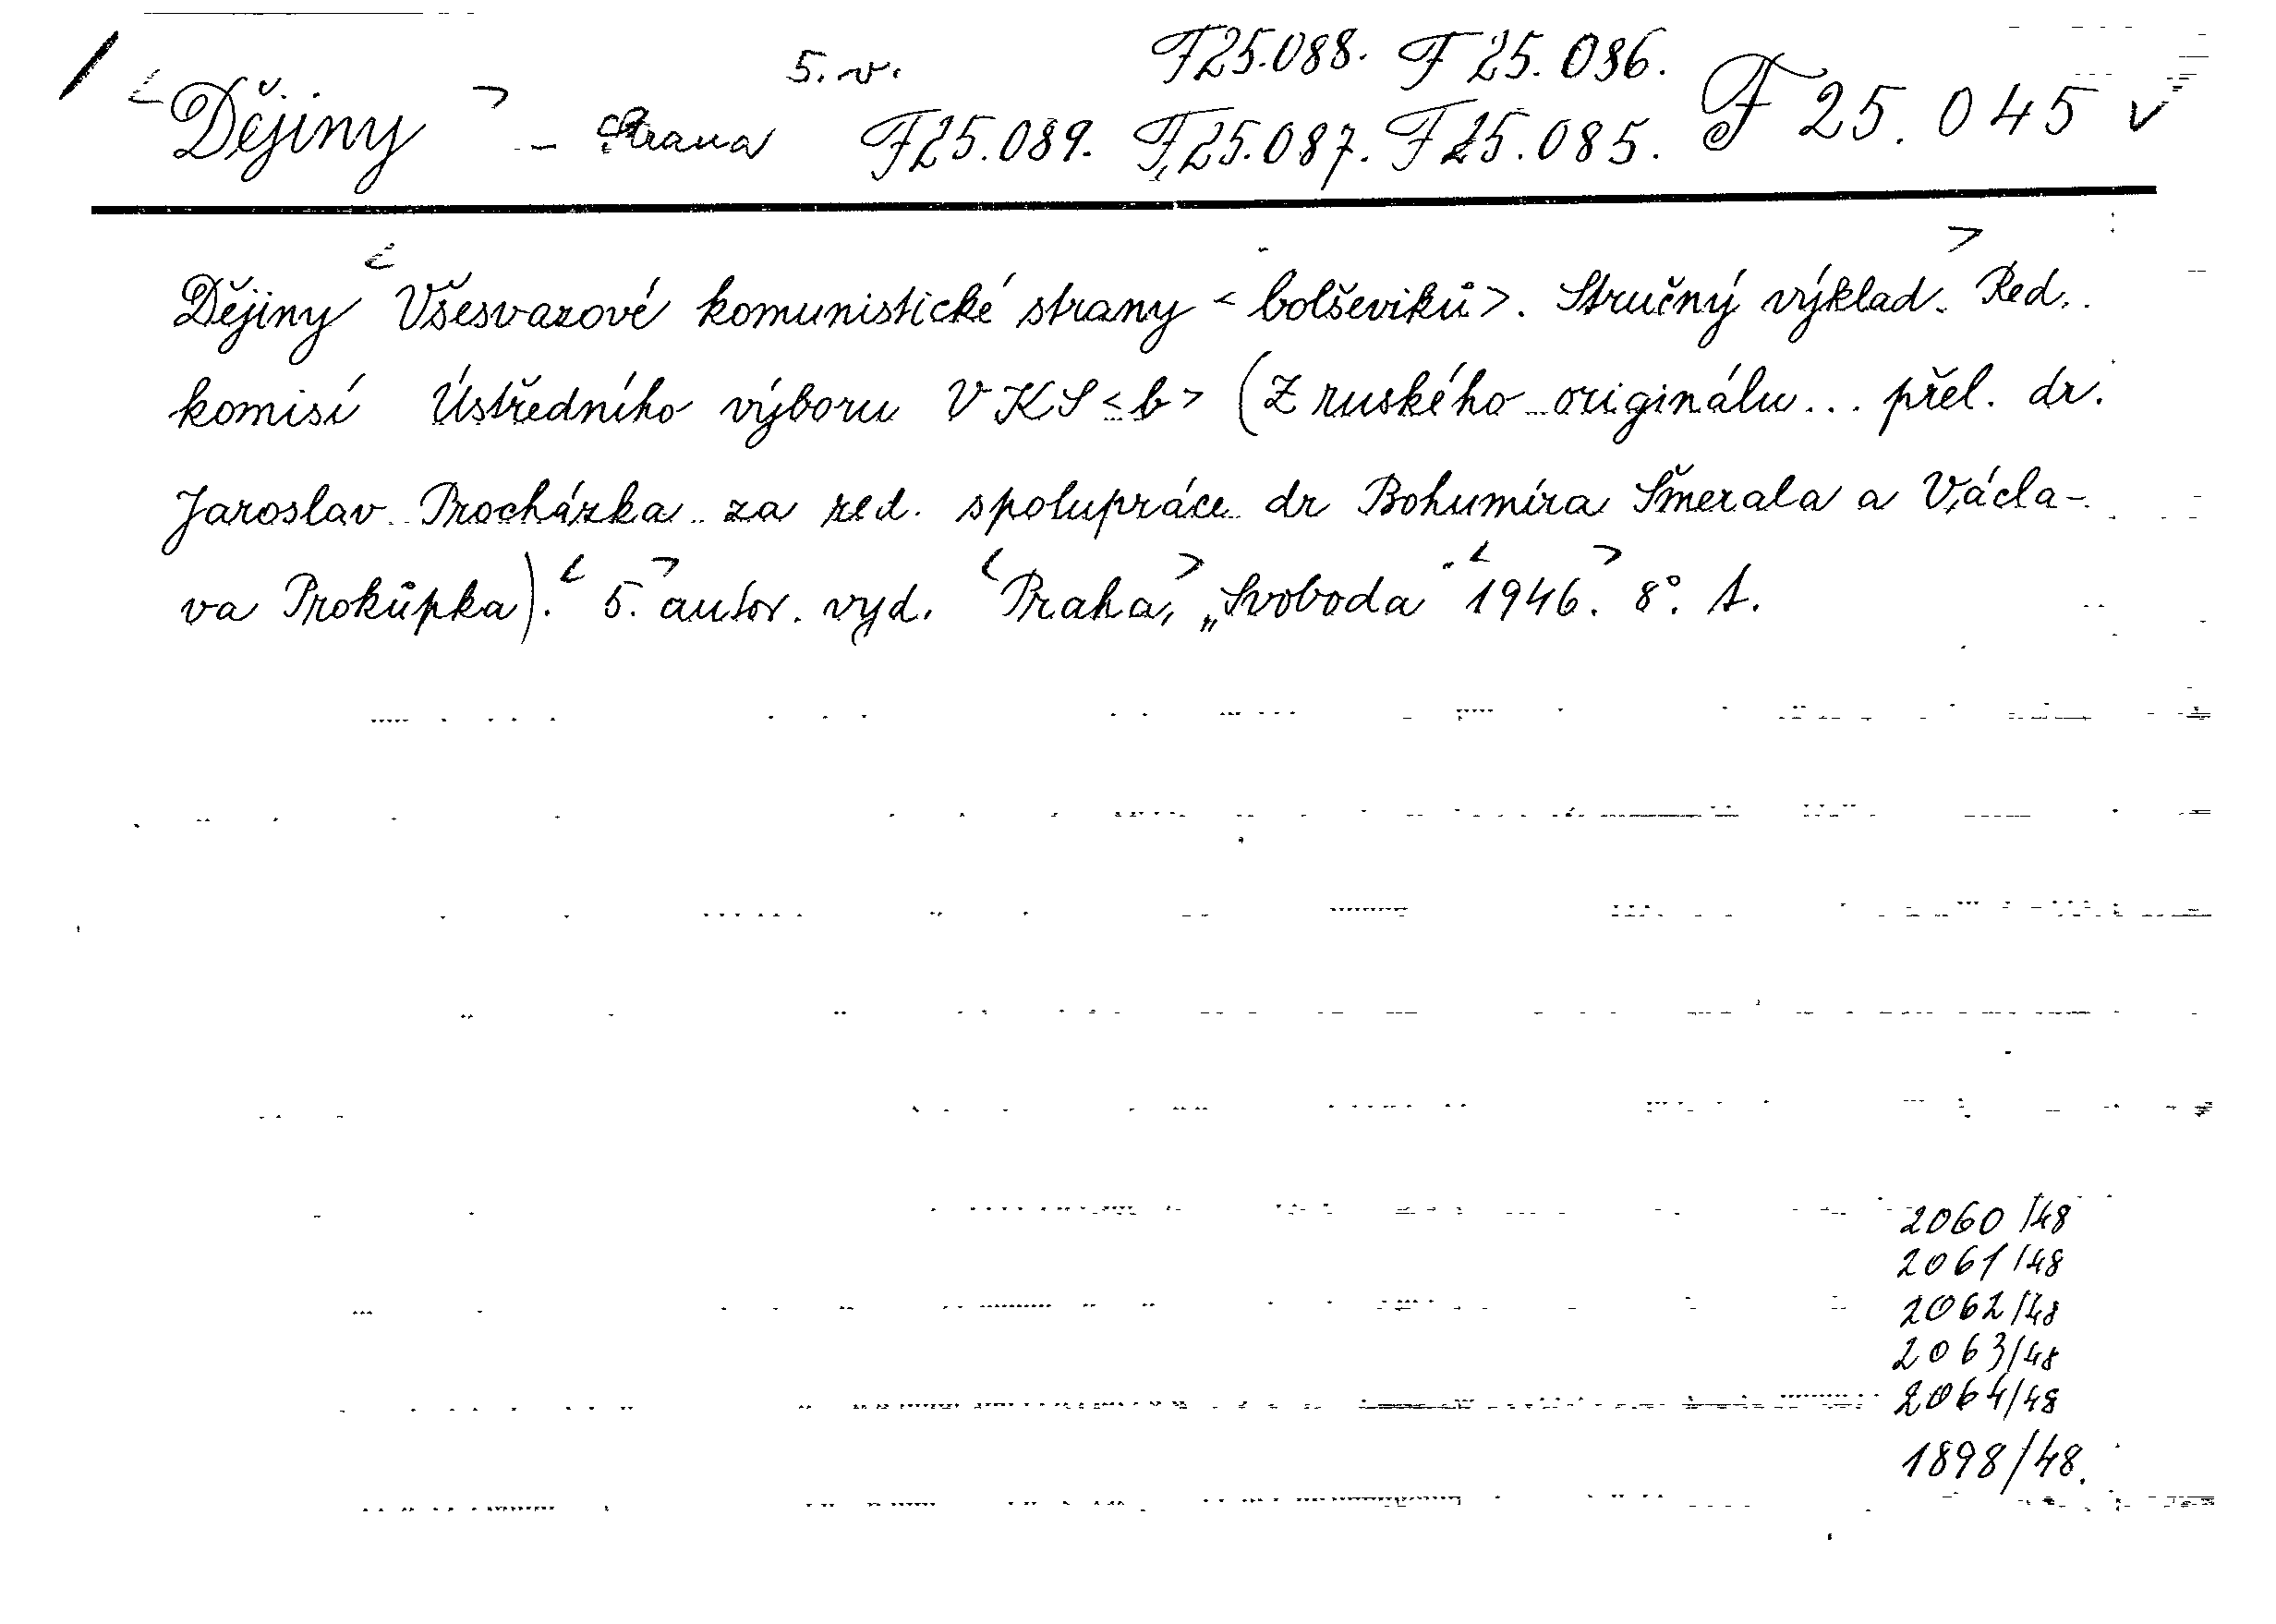 5. v. F 25.088. F 25.086.
Dějiny - strana F 25.089. F 25.087. F 25.085. F 25.045 v
Dějiny Všesvazové komunistické strany <bolševiků>. Stručný výklad. Red.
komisí Ústředního výboru VKS <b> (Z ruského originálu... přel. dr.
Jaroslav Procházka za red. spolupráce dr Bohumíra Šmerala a Václa-
va Prokůpka). 5. autor. vyd. Praha, „Svoboda" 1946. 8°. A.
2060/48
2061/48
2062/48
2063/48
2064/48
1898/48.